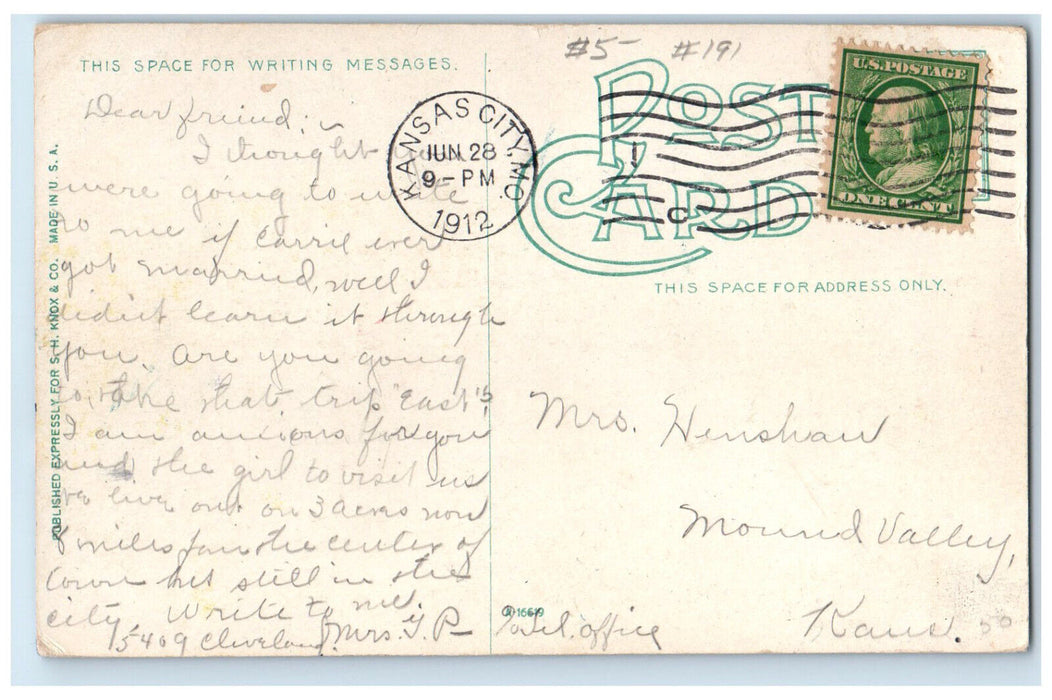 #5- #191
THIS SPACE FOR WRITING MESSAGES.
POST
CARD
U.S. POSTAGE
ONE CENT
KANSAS CITY, MO.
JUN 28
9-PM
1912
THIS SPACE FOR ADDRESS ONLY.
PUBLISHED EXPRESSLY FOR S. H. KNOX & CO. MADE IN U. S. A.
Dear friend; ~
I thought you
were going to write
to me if Carrie ever
got married, well I
didn't learn it through
you. Are you going
to take that trip "East"?
I am anxious for you
and the girl to visit us
We live out on 3 acres now
8 miles from the center of
town but still in the
city. Write to me,
5409 Cleveland. Mrs. G. P-
A-16619
Mrs. Henshaw
Mound Valley,
Kans.
% Tel. office
50